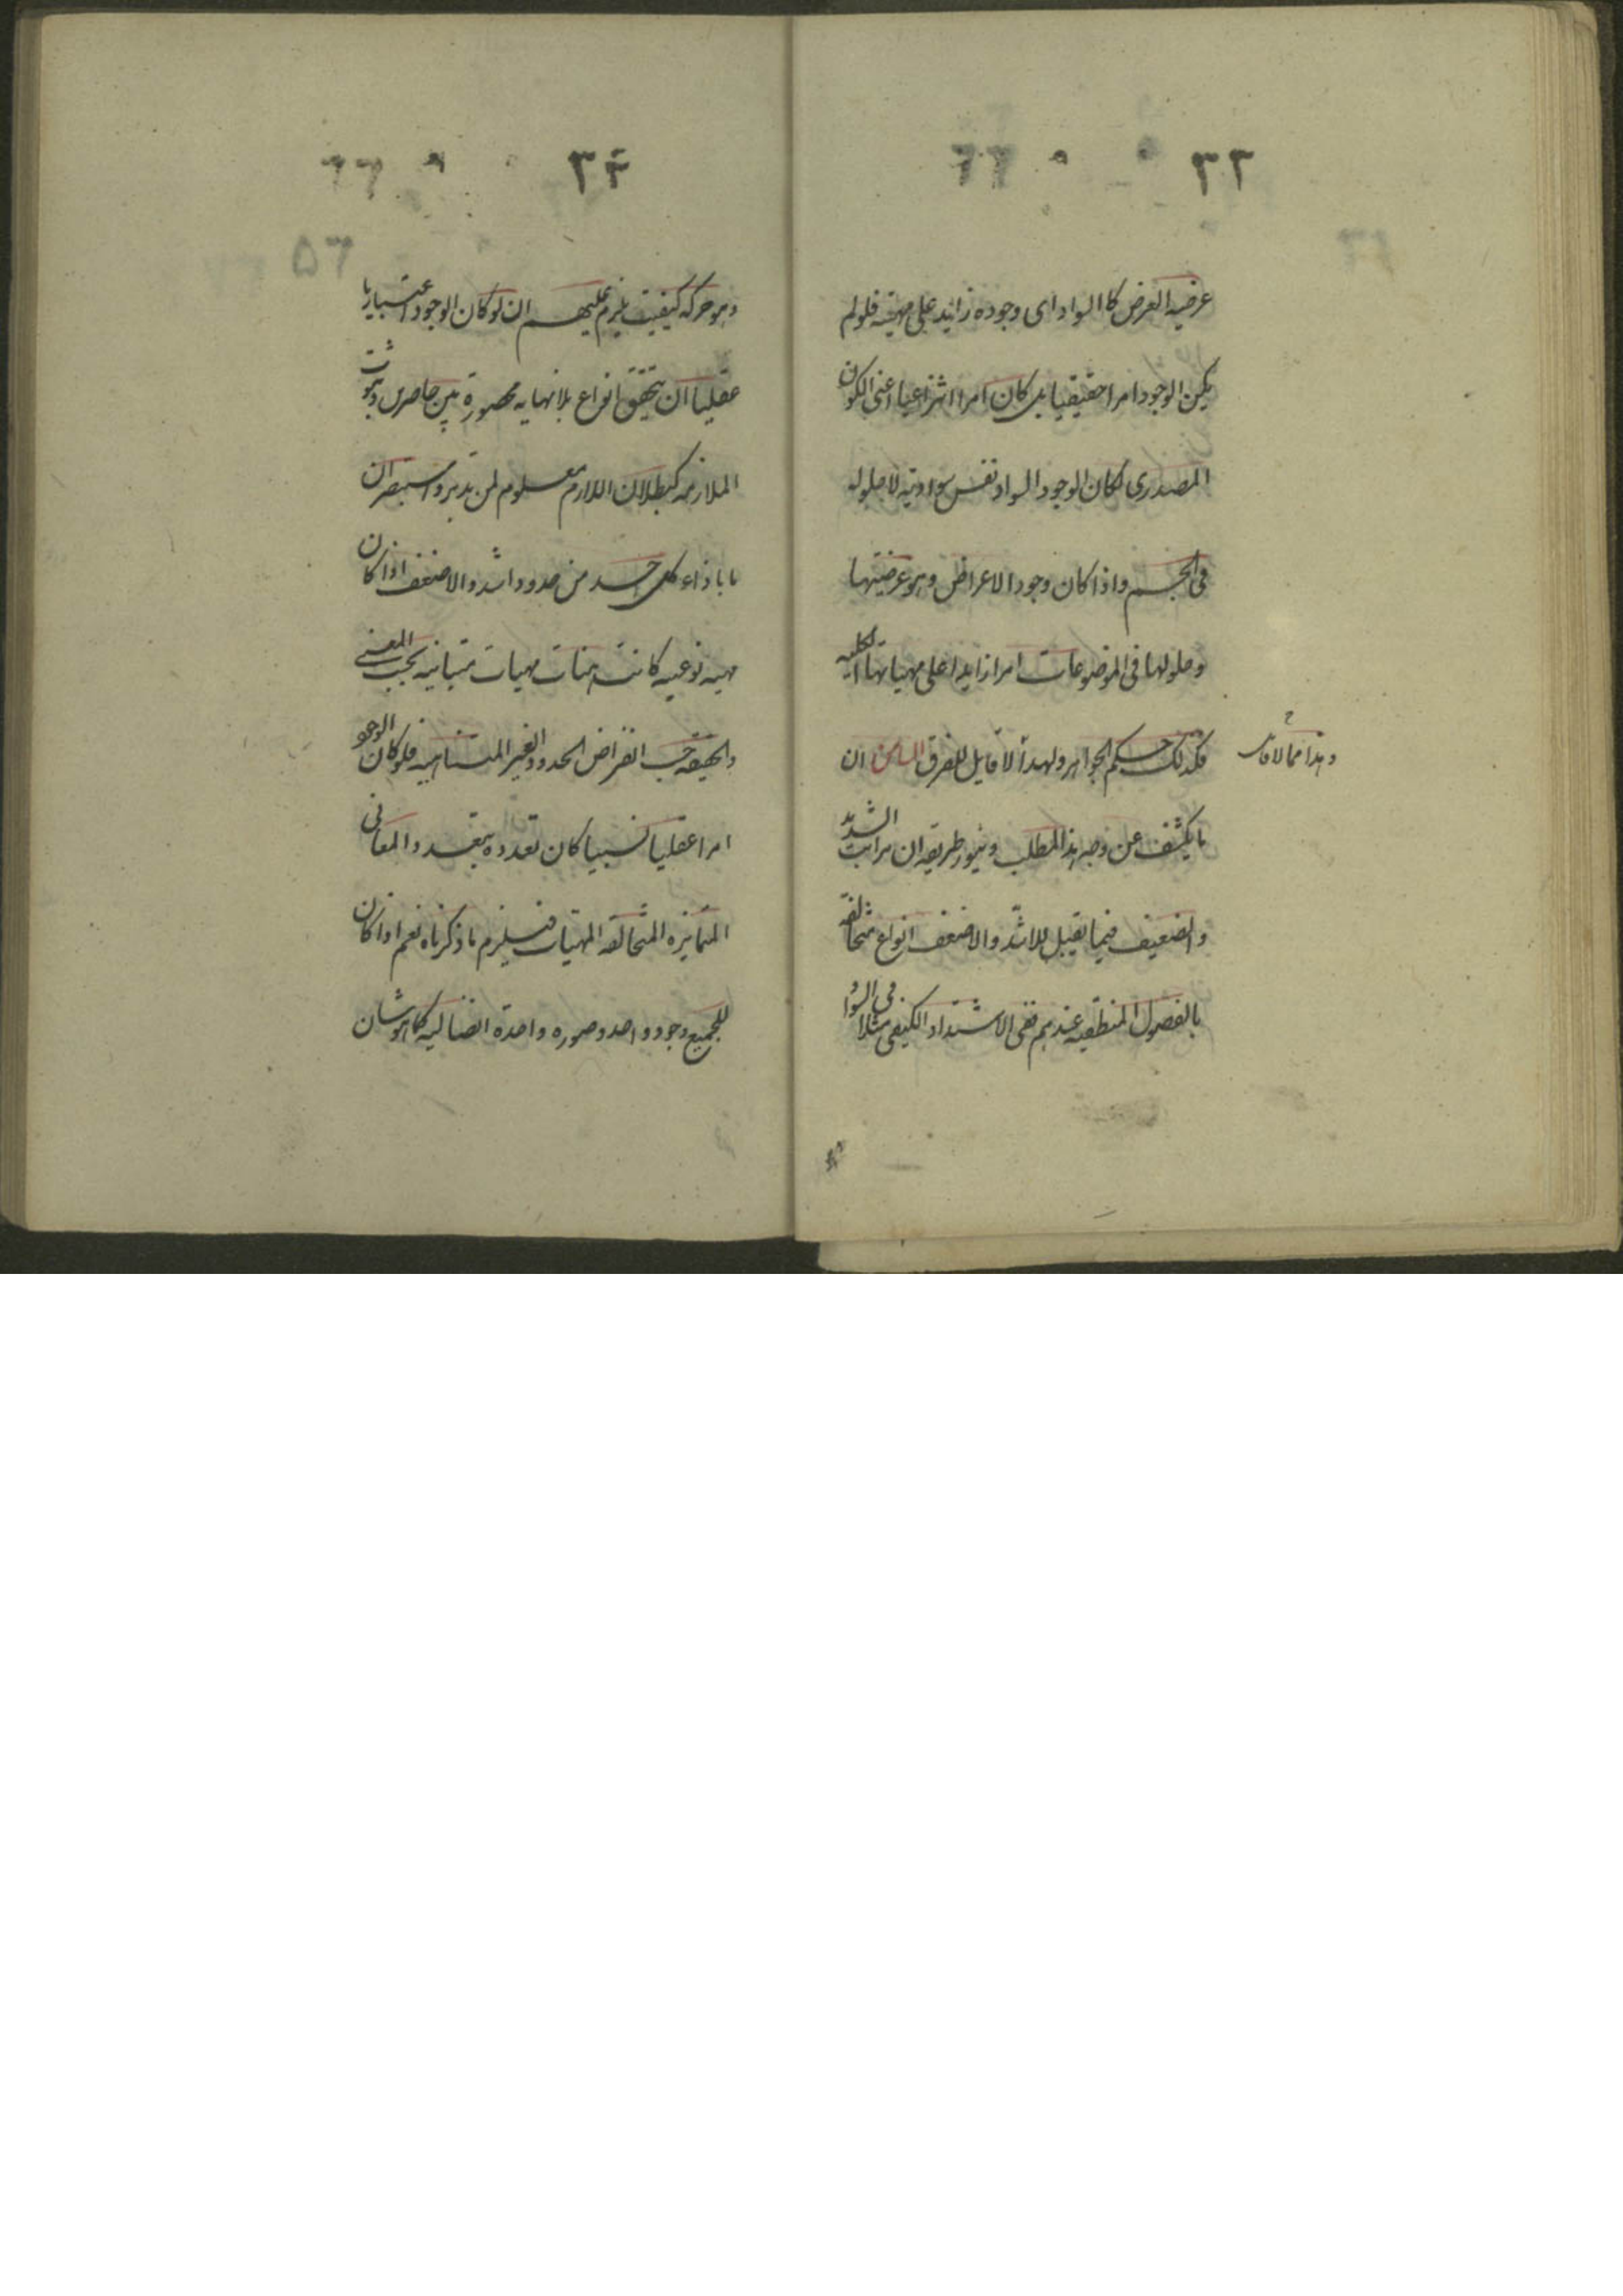 ٣٢
عرضیه العرض کا السواد ای وجوده زائد علی مهیته فلو لم
یکن الوجود امرا حقیقیا بل کان امرا انتزاعیا اعنی الکون
المصدری لکان الوجود السواد نفس سوادیته لا حلوله
فی الجسم و اذا کان وجود الاعراض و هو عرضیتها
و حلولها فی الموضوعات امرا زایدا علی مهیاتها الکلیه
فکذلک حکم الجواهر و لهذا لا قایل للفرق السادس ان
و هذا مما لا قایل
ما یکشف عن وجه هذا المطلب و ینور طریقه ان مراتب الشدید
و الضعیف فیما یقبل للاشد و الاضعف انواع متخالفة
بالفصول المنطقیه عندهم ففی الاشتداد الکیفی مثلا فی السواد
٣٣
و هو حرکه کیفیت یلزم علیهم ان لو کان الوجود اعتباریا
عقلیا ان یتحقق انواع بلا نهایه محصورة بین حاصرین و ثبوت
الملازمه کبطلان اللازم معلوم لمن تدبر و استبصر ان
ما باذاء کل حد من حدود اشد و الاضعف اذا کان
مهیه نوعیه کانت هناک مهیات متباینه بحسب المعنی
و الحیقه حسب انفراض الحدود الغیر المتناهیه فلو کان الوجود
امرا عقلیا نسبیا کان تعدده بتعدد المعانی
المتمایزه المتخالفه المهیات فیلزم ما ذکرناه نعم اذا کان
للجمیع وجود واحد و صوره واحدة اتصالیه کما هو شان